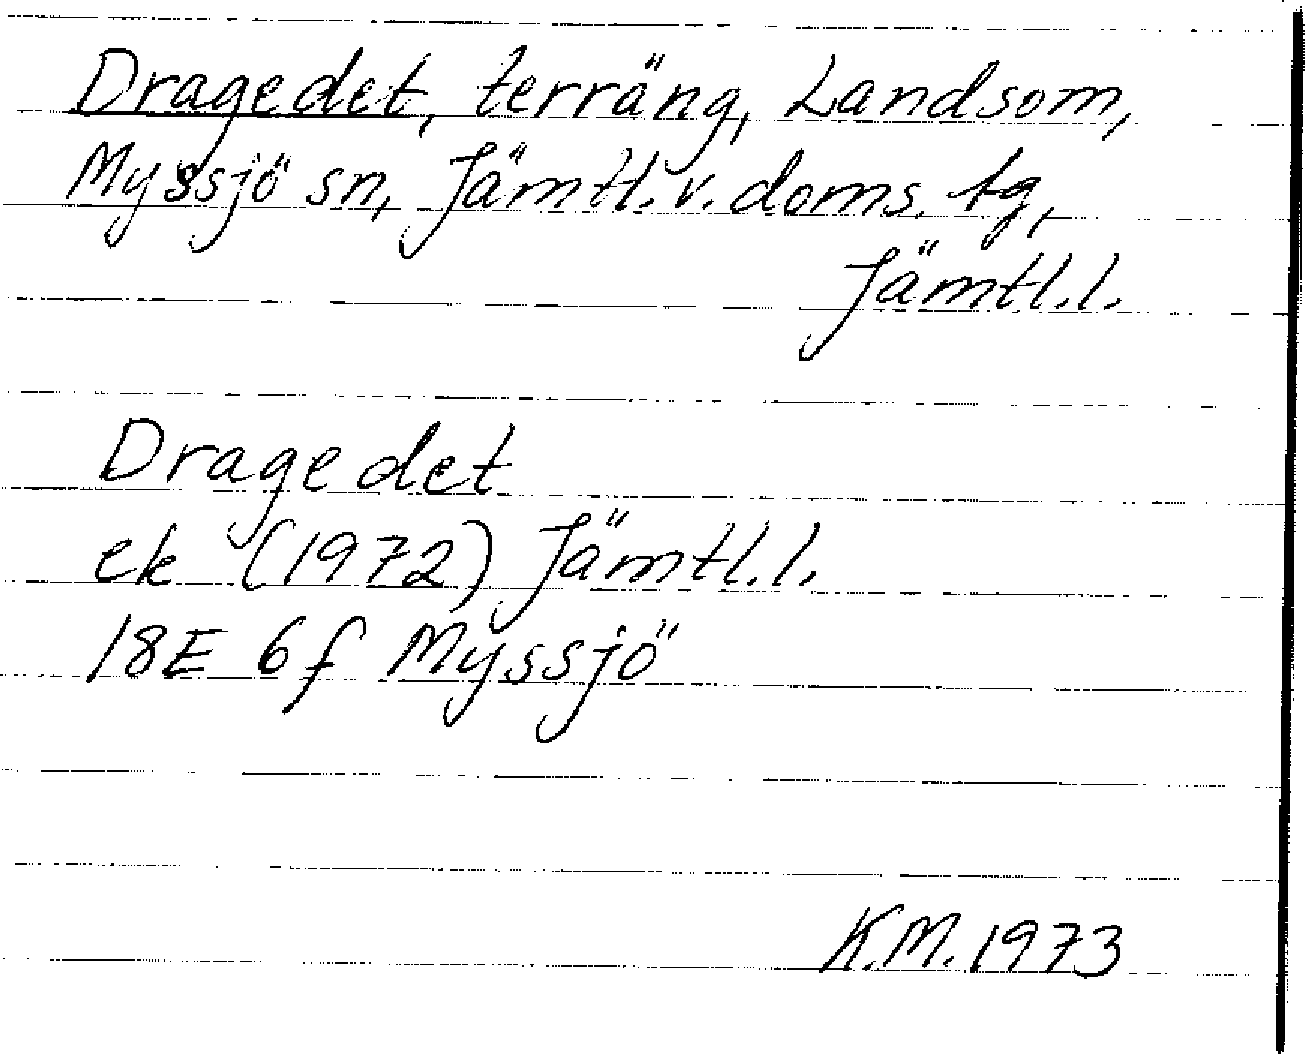 Dragedet, terräng, Landsom,
Myssjö sn, Jämtl. v. doms. tg,
Jämtl. l.
Dragedet
ek (1972) Jämtl. l.
18E 6f Myssjö
K.M. 1973